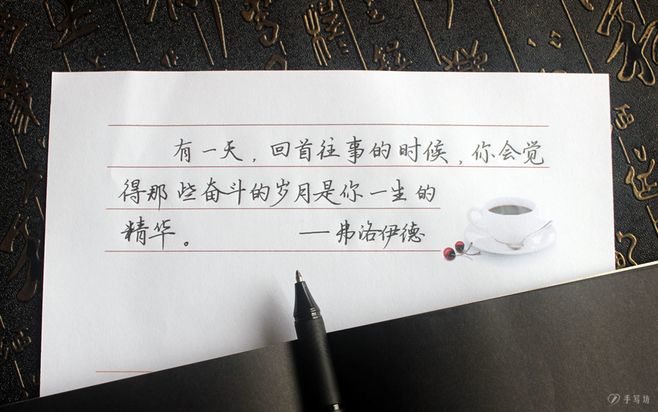 有一天，回首往事的时候，你会觉
得那些奋斗的岁月是你一生的
精华。 ——弗洛伊德
手写坊